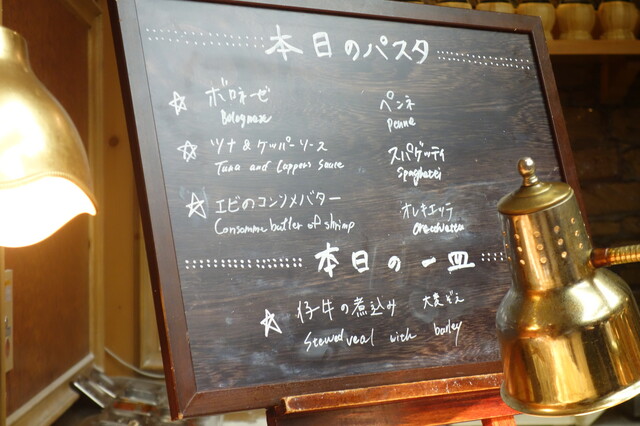 本日のパスタ
☆ ボロネーゼ ペンネ
Bolognese Penne
☆ ツナ&ケッパーソース スパゲッティ
Tuna and Cappers sauce Spaghetti
☆ エビのコンソメバター オレキエッテ
Consomme butter of shrimp
本日の一皿
☆ 仔牛の煮込み 大麦ぞえ
Stewed veal with barley